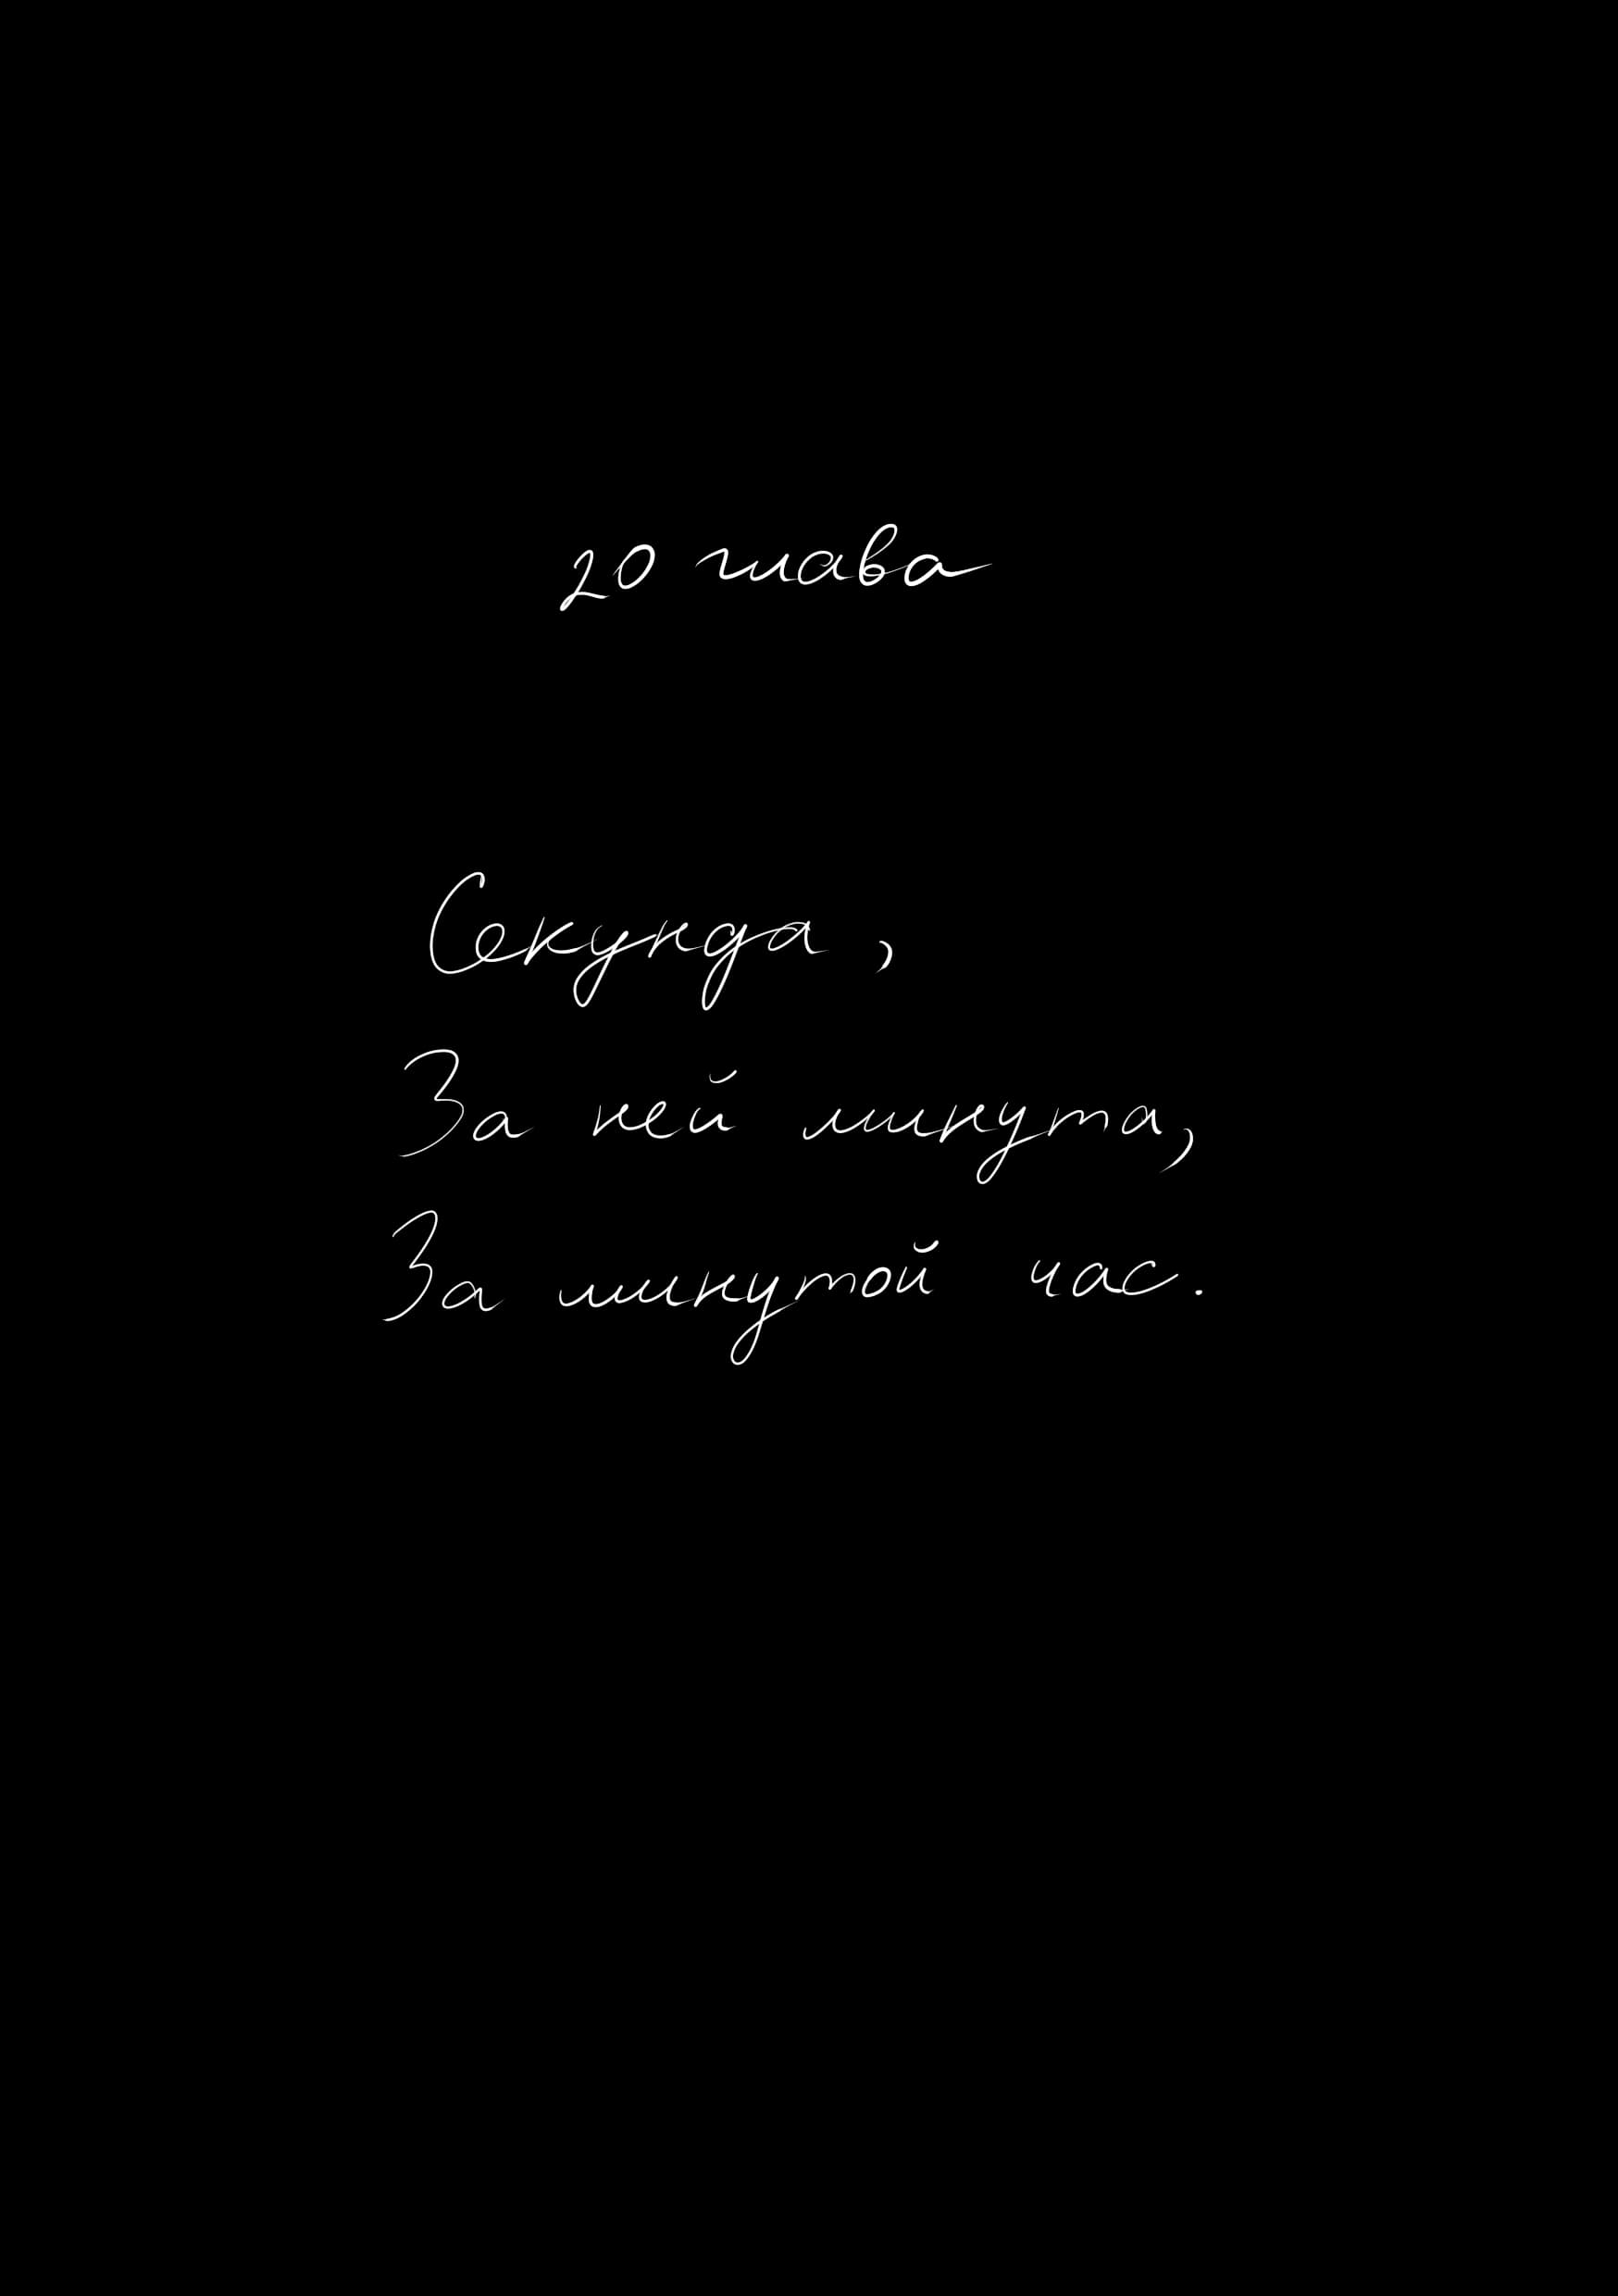 20 глава
Секунда,
За ней минута,
За минутой час.